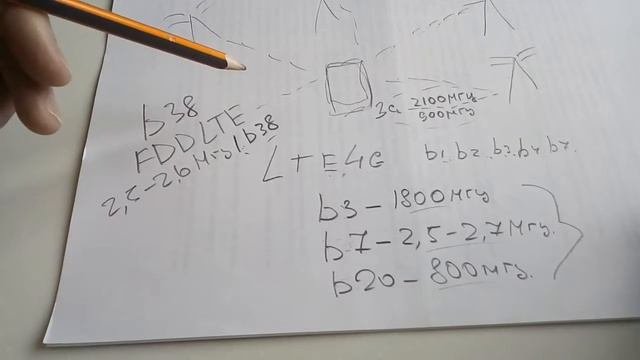 b38
FDD LTE
2,5-2,6 мгц / b38
3G 2100мгц
900мгц
LTE 4G
b1 b2 b3 b4 b7.
b3 - 1800мгц
b7 - 2,5-2,7мгц.
b20 - 800мгц.